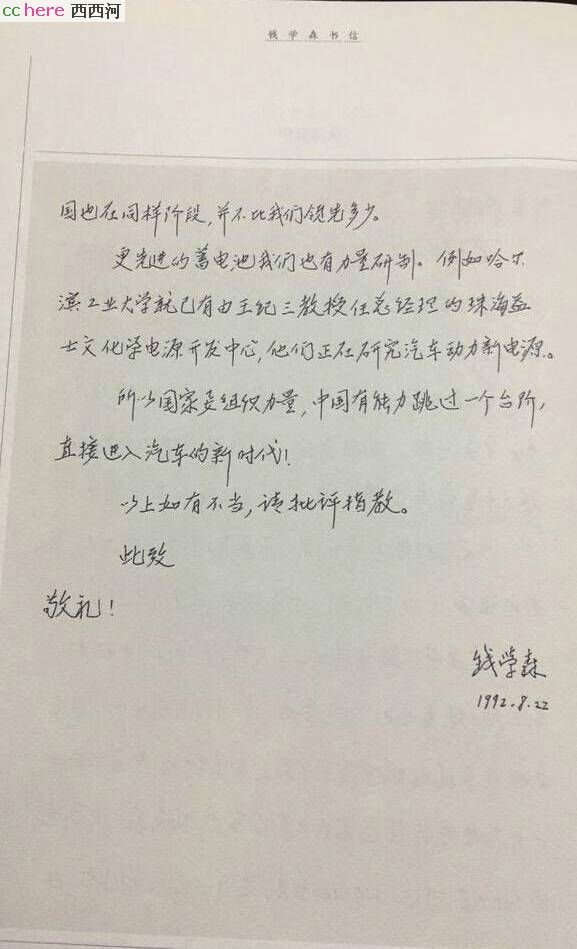 cchere 西西河
钱学森书信
国也在同样阶段，并不比我们领先多少。
更先进的蓄电池我们也有力量研制。例如哈尔
滨工业大学就已有由王纪三教授任总经理的珠海益
士文化学电源开发中心，他们正在研究汽车动力新电源。
所以国家要组织力量，中国有能力跳过一个台阶，
直接进入汽车的新时代！
以上如有不当，请批评指教。
此致
敬礼！
钱学森
1992.8.22